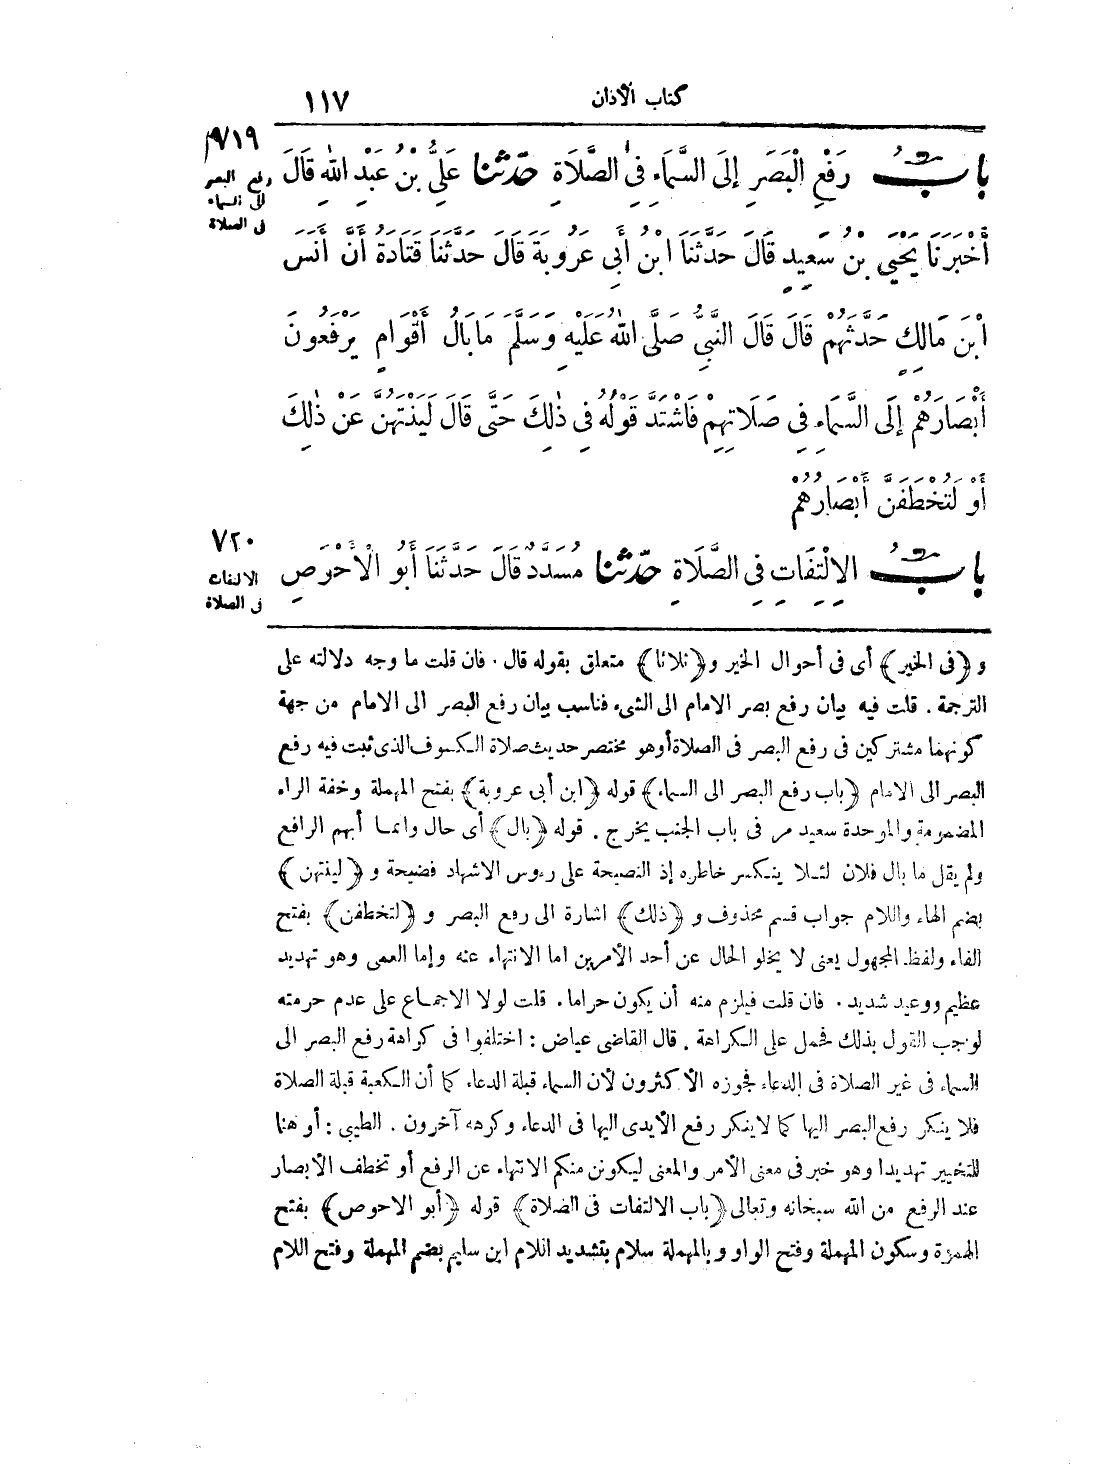 كتاب الأذان ١١٧
٧١٩
رفع البصر
الى السماء
فى الصلاة
بابُ رَفْعِ الْبَصَرِ إِلَى السَّمَاءِ فِى الصَّلَاةِ حدّثنا عَلِىُّ بْنُ عَبْدِ اللهِ قَالَ
أَخْبَرَنَا يَحْيَى بْنُ سَعِيدٍ قَالَ حَدَّثَنَا ابْنُ أَبِى عَرُوبَةَ قَالَ حَدَّثَنَا قَتَادَةُ أَنَّ أَنَسَ
ابْنَ مَالِكٍ حَدَّثَهُمْ قَالَ قَالَ النَّبِىُّ صَلَّى اللهُ عَلَيْهِ وَسَلَّمَ مَا بَالُ أَقْوَامٍ يَرْفَعُونَ
أَبْصَارَهُمْ إِلَى السَّمَاءِ فِى صَلَاتِهِمْ فَاشْتَدَّ قَوْلُهُ فِى ذٰلِكَ حَتَّى قَالَ لَيَنْتَهُنَّ عَنْ ذٰلِكَ
أَوْ لَتُخْطَفَنَّ أَبْصَارُهُمْ
٧٢٠
الالتفات
فى الصلاة
بابُ الِالْتِفَاتِ فِى الصَّلَاةِ حدّثنا مُسَدَّدٌ قَالَ حَدَّثَنَا أَبُو الْأَحْوَصِ
و (فى الخير) أى فى أحوال الخير و (ثلاثا) متعلق بقوله قال . فان قلت ما وجه دلالته على
الترجمة . قلت فيه بيان رفع بصر الامام الى الشىء فناسب بيان رفع البصر الى الامام من جهة
كونهما مشتركين فى رفع البصر فى الصلاة أو هو مختصر حديث صلاة الكسوف الذى ثبت فيه رفع
البصر الى الامام (باب رفع البصر الى السماء) قوله (ابن أبى عروبة) بفتح المهملة وخفة الراء
المضمومة والموحدة سعيد مر فى باب الجنب يخرج . قوله (بال) أى حال وانما أبهم الرافع
ولم يقل ما بال فلان لئلا ينكسر خاطره إذ النصيحة على رءوس الاشهاد فضيحة و (لينتهن)
بضم الهاء واللام جواب قسم محذوف و (ذلك) اشارة الى رفع البصر و (لتخطفن) بفتح
الفاء ولفظ المجهول يعنى لا يخلو الحال عن أحد الأمرين اما الانتهاء عنه وإما العمى وهو تهديد
عظيم ووعيد شديد . فان قلت فيلزم منه أن يكون حراما . قلت لولا الاجماع على عدم حرمته
لوجب القول بذلك فحمل على الكراهة . قال القاضى عياض : اختلفوا فى كراهة رفع البصر الى
السماء فى غير الصلاة فى الدعاء فجوزه الأكثرون لأن السماء قبلة الدعاء كما أن الكعبة قبلة الصلاة
فلا ينكر رفع البصر اليها كما لا ينكر رفع الأيدى اليها فى الدعاء وكرهه آخرون . الطيبى : أو هنا
للتخيير تهديدا وهو خبر فى معنى الأمر والمعنى ليكونن منكم الانتهاء عن الرفع أو تخطف الأبصار
عند الرفع من الله سبحانه وتعالى (باب الالتفات فى الصلاة) قوله (أبو الاحوص) بفتح
الهمزة وسكون المهملة وفتح الواو وبالمهملة سلام بتشديد اللام ابن سليم بضم المهملة وفتح اللام